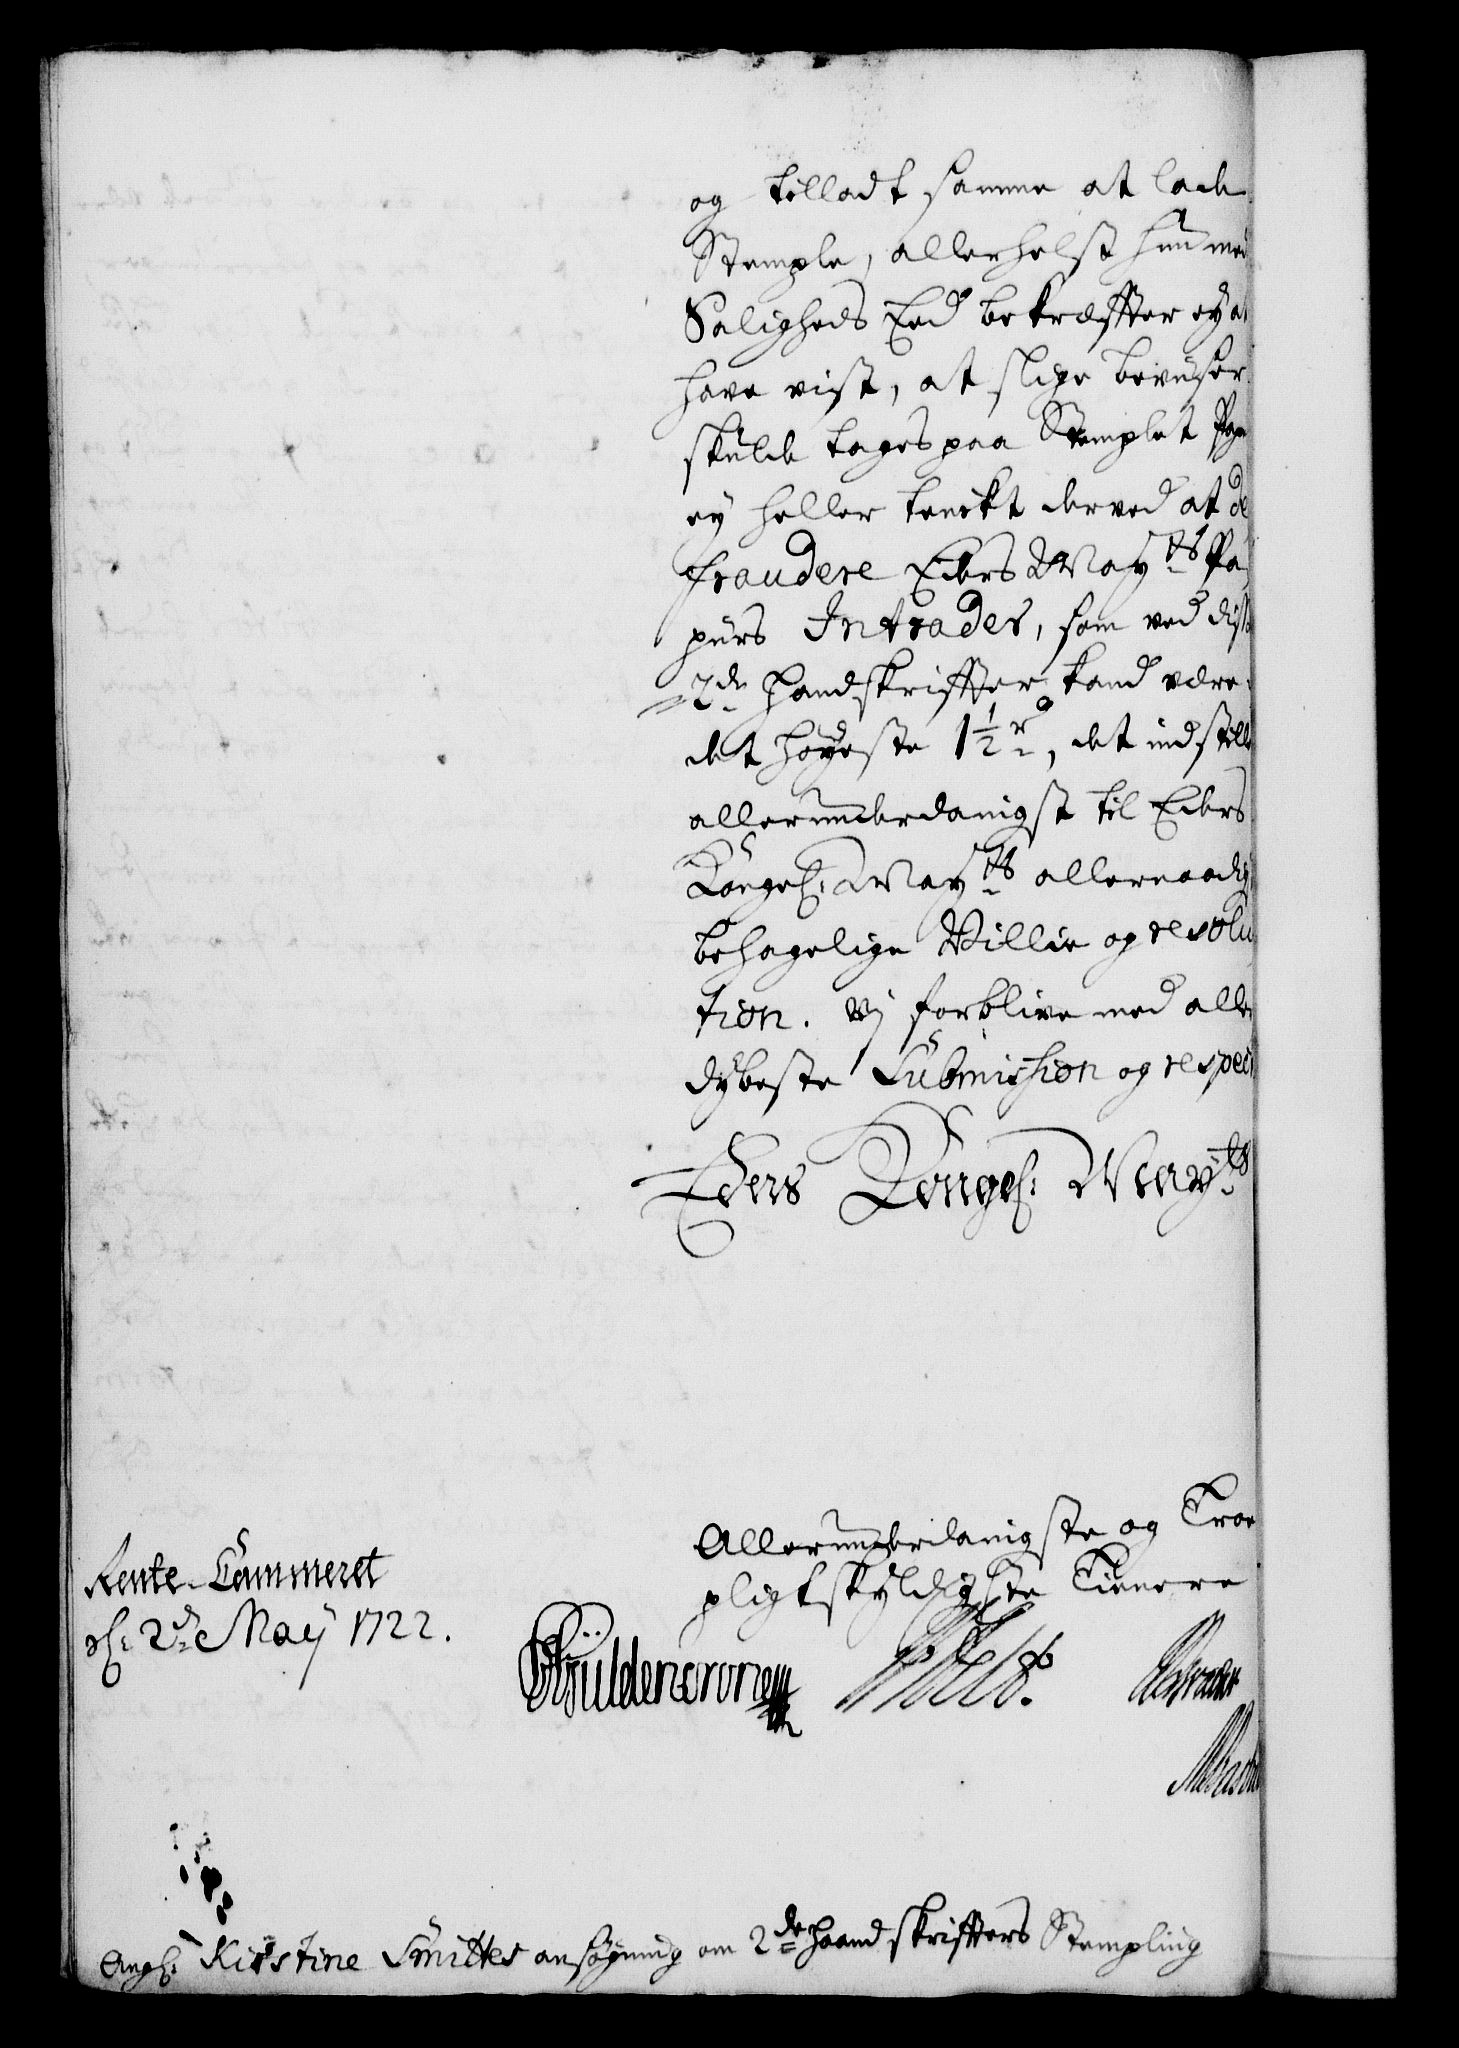 og tilladt samme at lade
Stemple, allerhelst hun med
Saligheds Eed bekræffter ey at
have vist, at slige beviser
skulde tages paa Stemplet Pap
ey heller tenckt derved at de
fraudere Eders May.ts Pa
piirs Intrader, som ved diss
2de Handskriffter kand være
det høyeste 1½ rd, det indstill
allerunderdanigst til Eders
Kongel: May.ts allernaadig
behagelige Villie og resolu
tion. Vi forblive med aller
dybeste Submission og respect
Eders Kongel: May.ts
Allerunderdanigste og Troe
pligtskyldigste Tienere
Rente-Cammeret
d: 2de May 1722.
Güldencrone
Ang: Kirstine Smittes ansøgning om 2de Haandskriffters Stempling